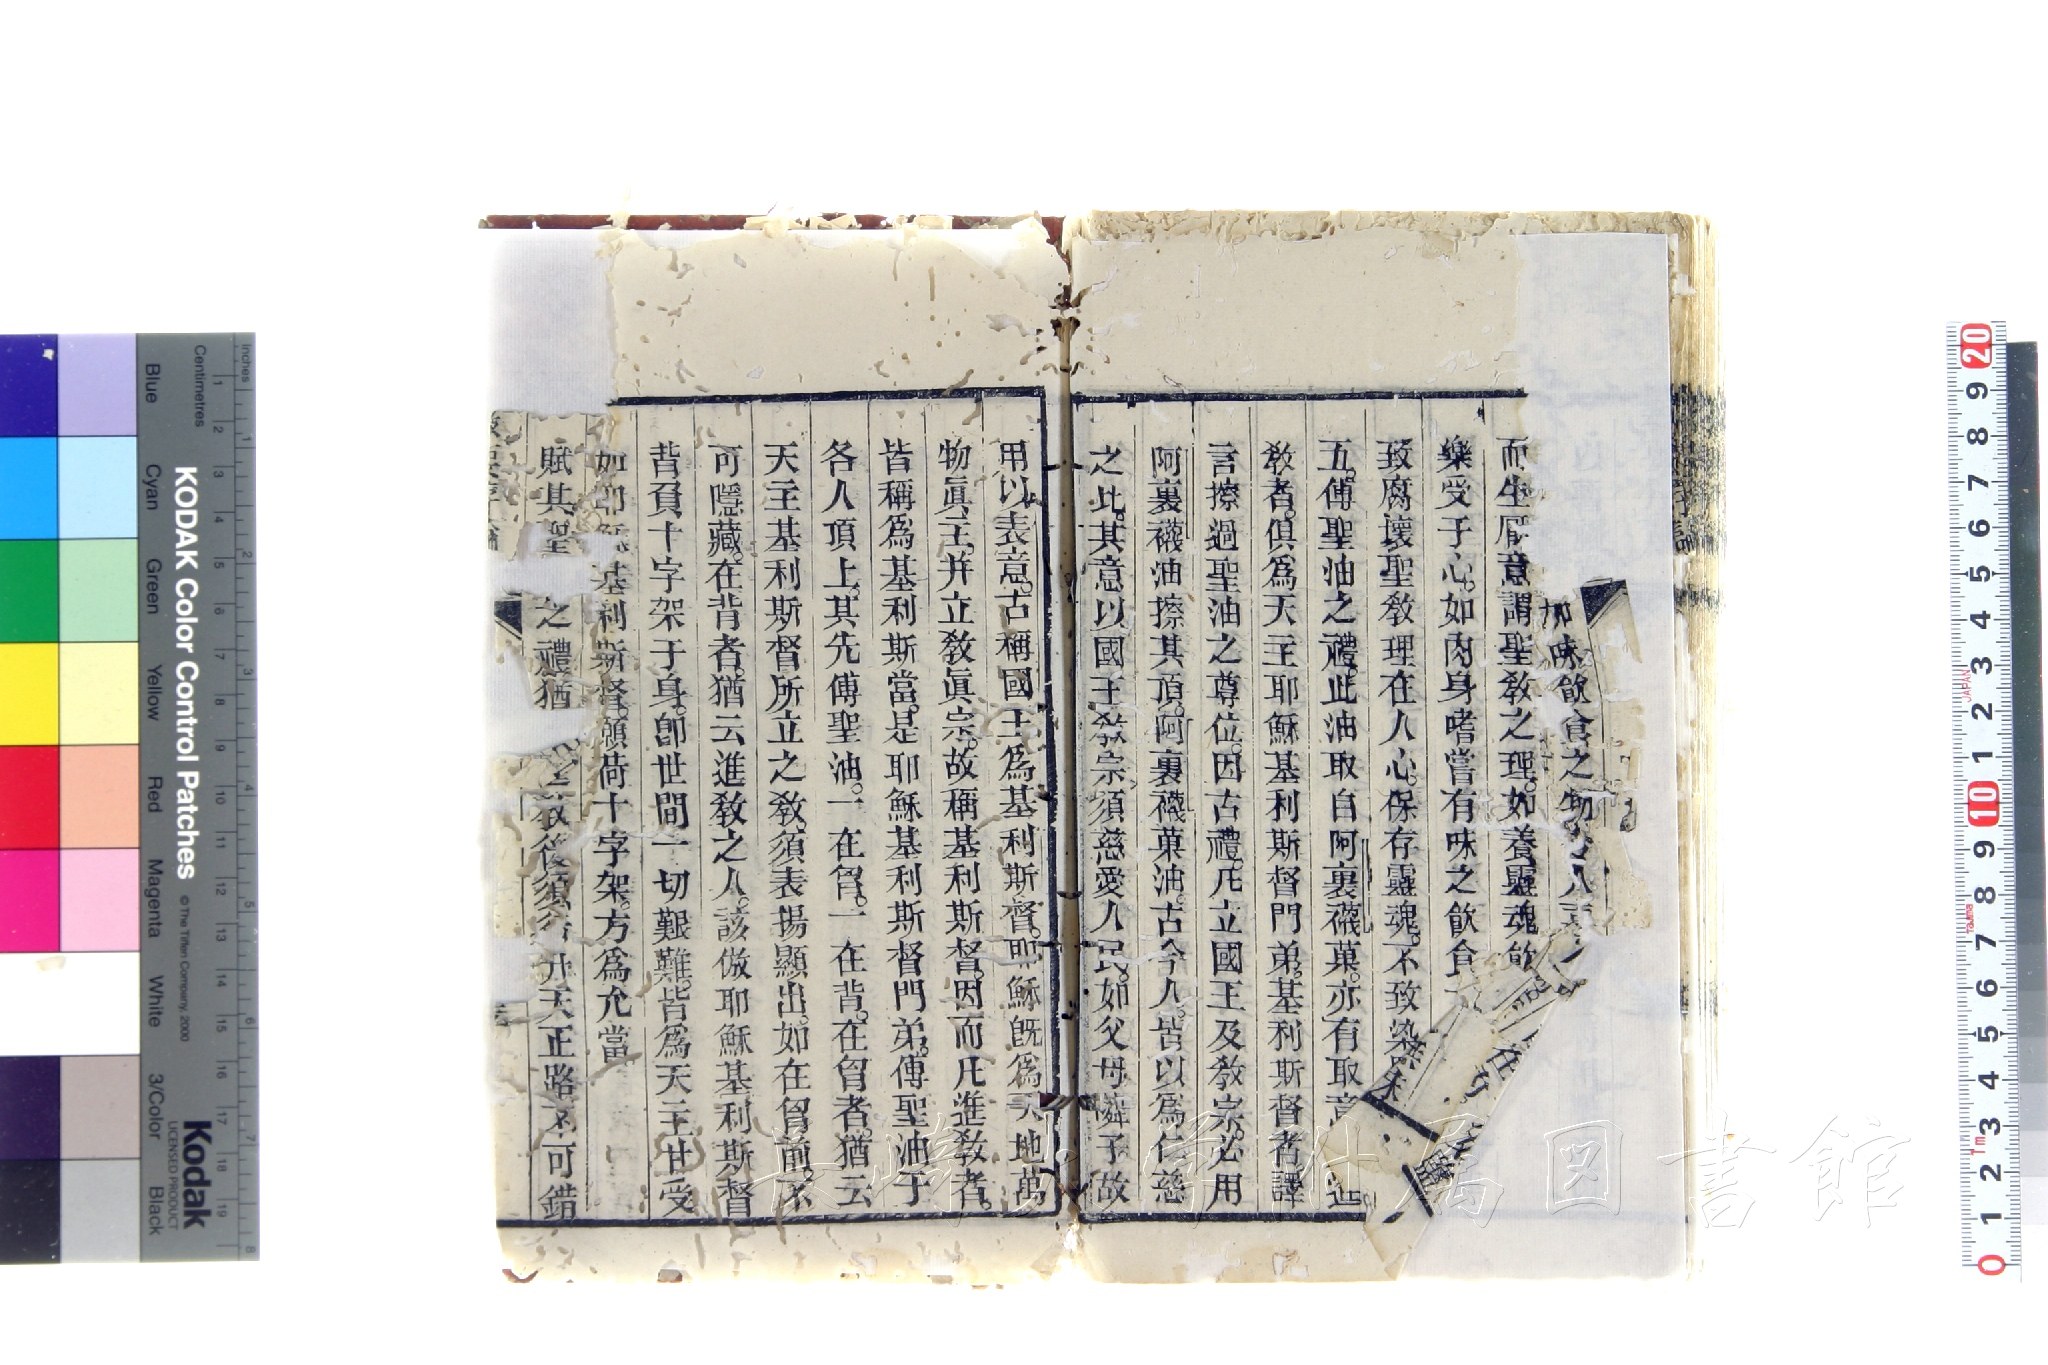 加味飲食之物
而生厭意謂聖教之理。如養靈魂飲
樂受于心。如肉身嗜嘗有味之飲食
致腐壞聖教理在人心。保存靈魂。不致染
五。傅聖油之禮。此油取自阿裏襪菓。亦有取意
教者。俱為天主耶穌基利斯督門弟。基利斯督者。譯
言擦過聖油之尊位。因古禮。凡立國王及教宗。必用
阿裏襪油擦其頂。阿裏襪菓油。古今人。皆以為仁慈
之此。其意以國王教宗須慈愛人民。如父母憐子故
用以表意。古稱國王為基利斯督。耶穌既為天地萬
物眞主。并立教眞宗。故稱基利斯督。因而凡進教者。
皆稱為基利斯當。是耶穌基利斯督門弟。傅聖油于
各人頂上。其先傅聖油。一在胷。一在背。在胷者。猶云
天主基利斯督所立之教。須表揚顯出。如在胷前。不
可隱藏。在背者。猶云進教之人。該倣耶穌基利斯督
背負十字架于身。卽世間一切艱難。皆為天主甘受
如耶穌基利斯督。願荷十字架。方為允當
賦其聖之禮猶教後須行升天正路不可錯
KODAK Color Control Patches
© The Tiffen Company, 2000
Kodak
LICENSED PRODUCT
Inches
Centimetres
Blue Cyan Green Yellow Red Magenta White 3/Color Black
長崎大学附属図書館